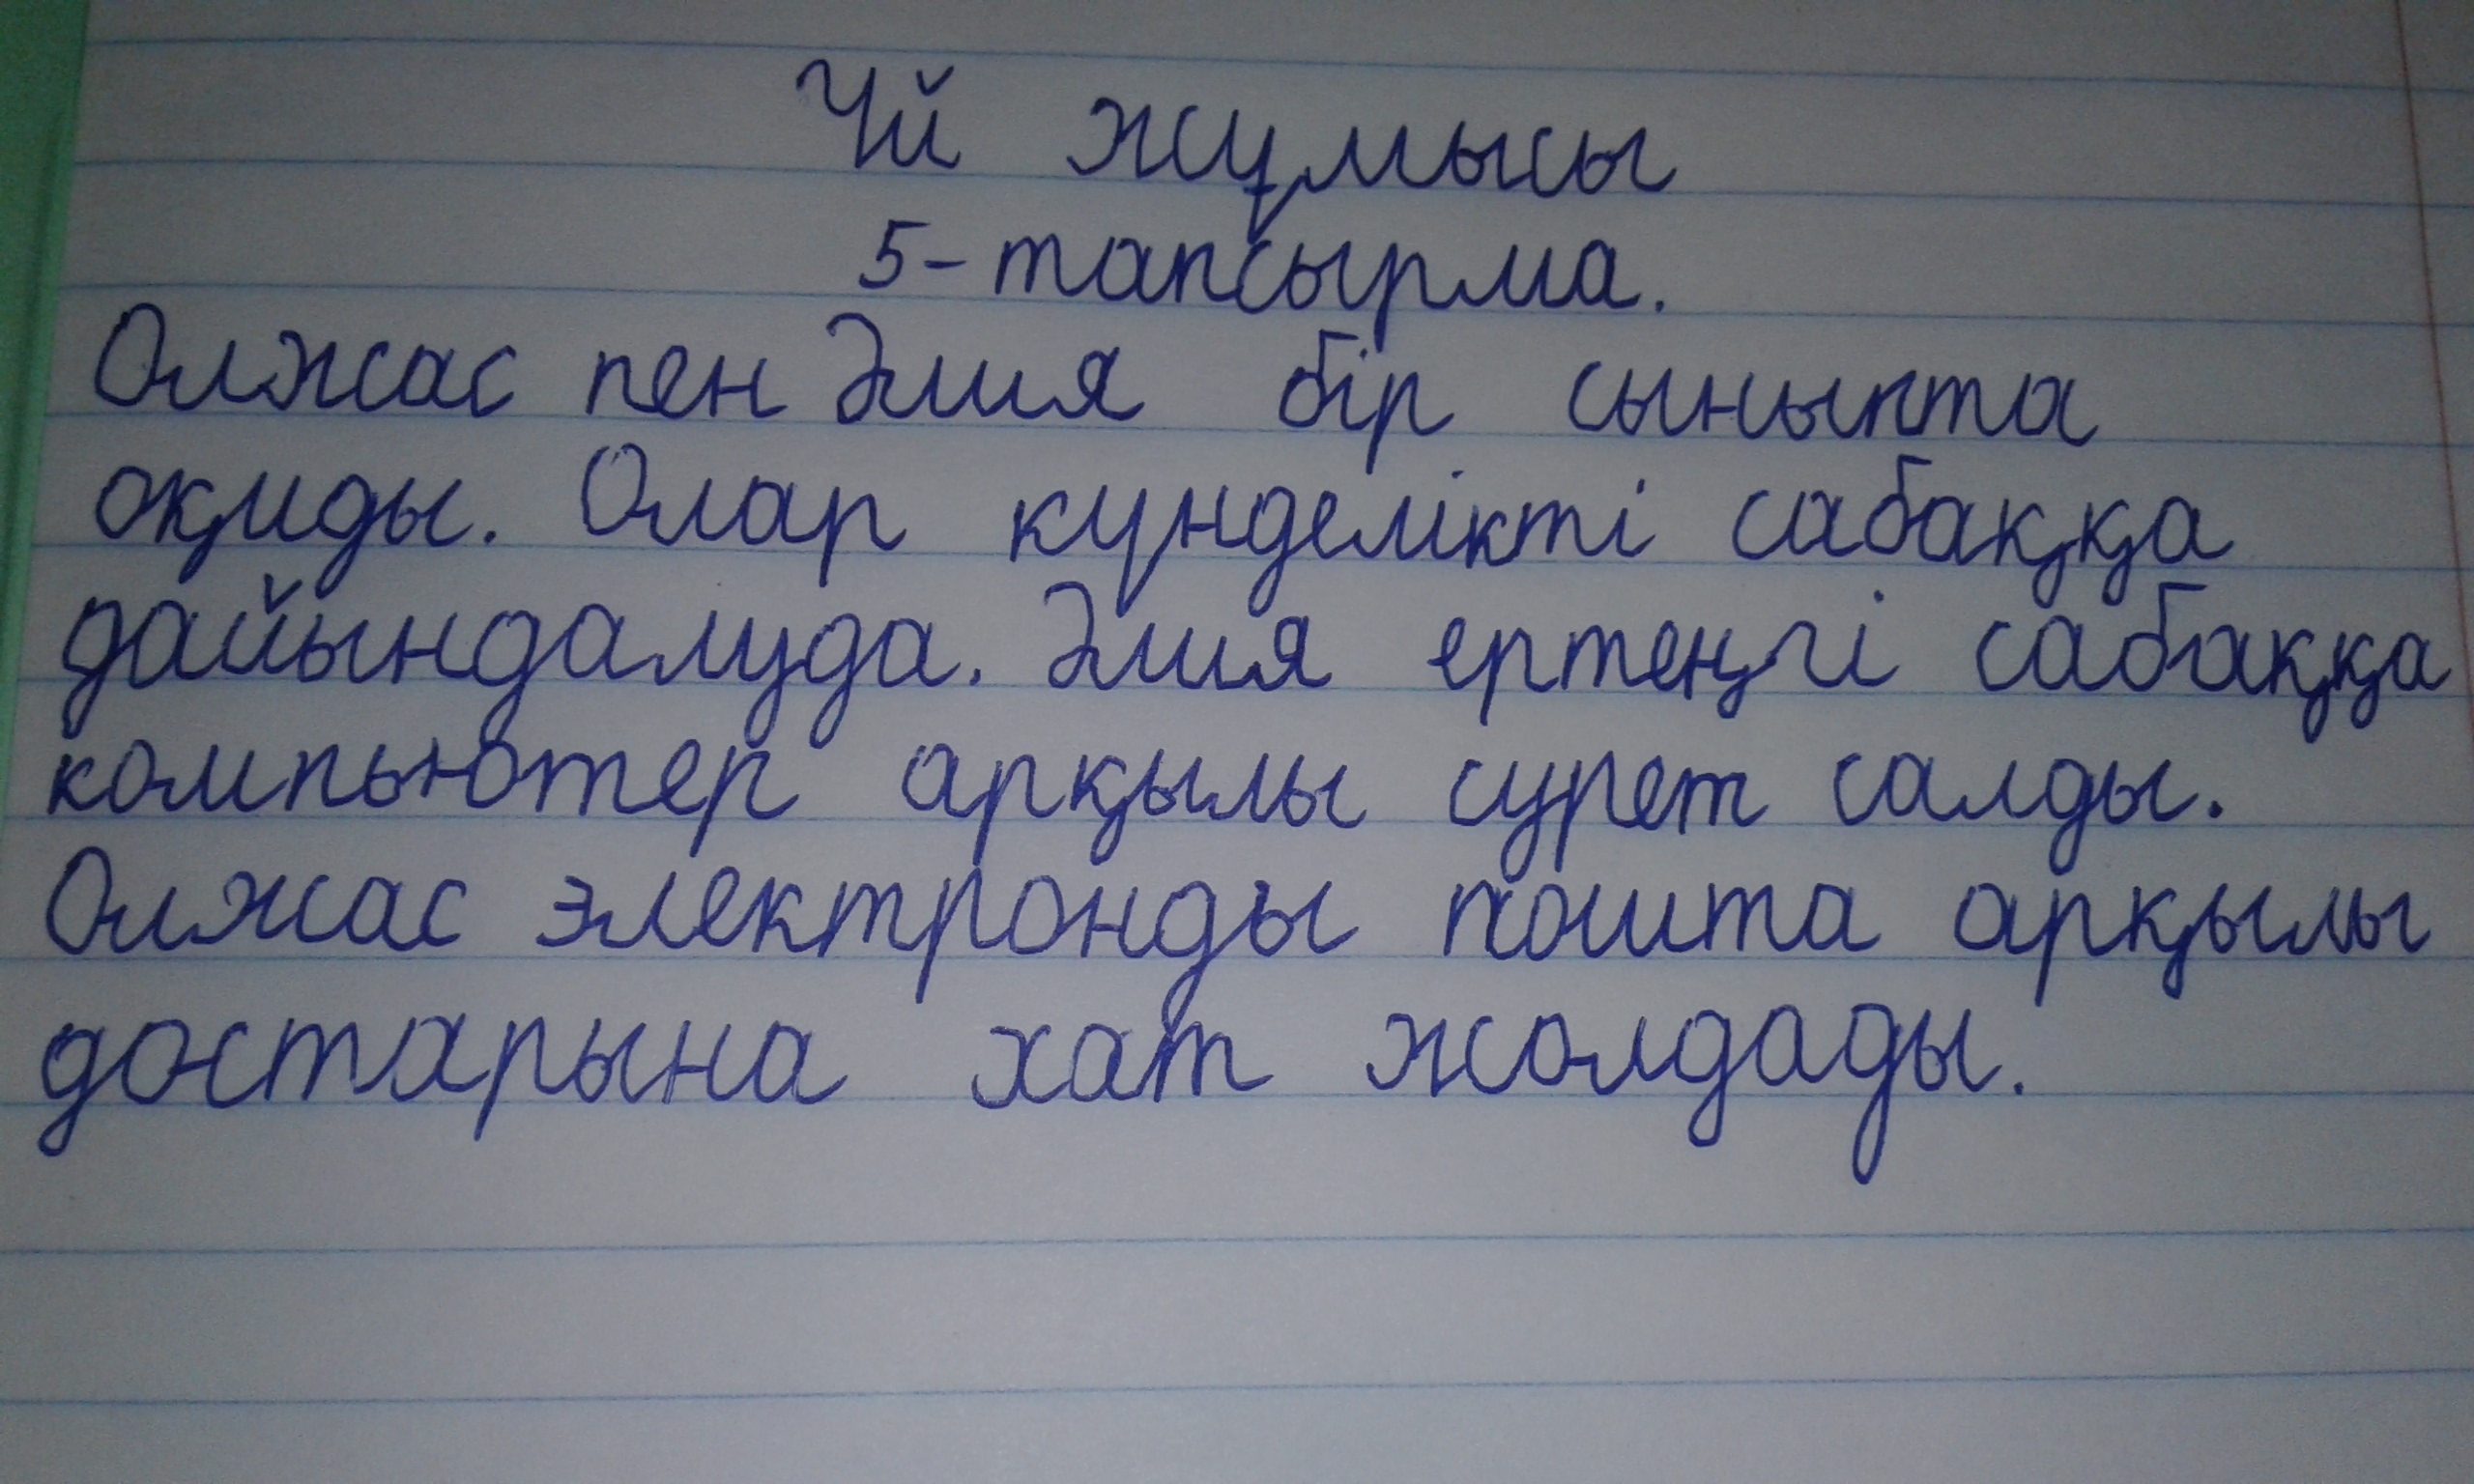 Үй жұмысы
5-тапсырма.
Олжас пен Әлия бір сыныпта
оқиды. Олар күнделікті сабаққа
дайындалуда. Әлия ертеңгі сабаққа
компьютер арқылы сурет салды.
Олжас электронды пошта арқылы
достарына хат жолдады.